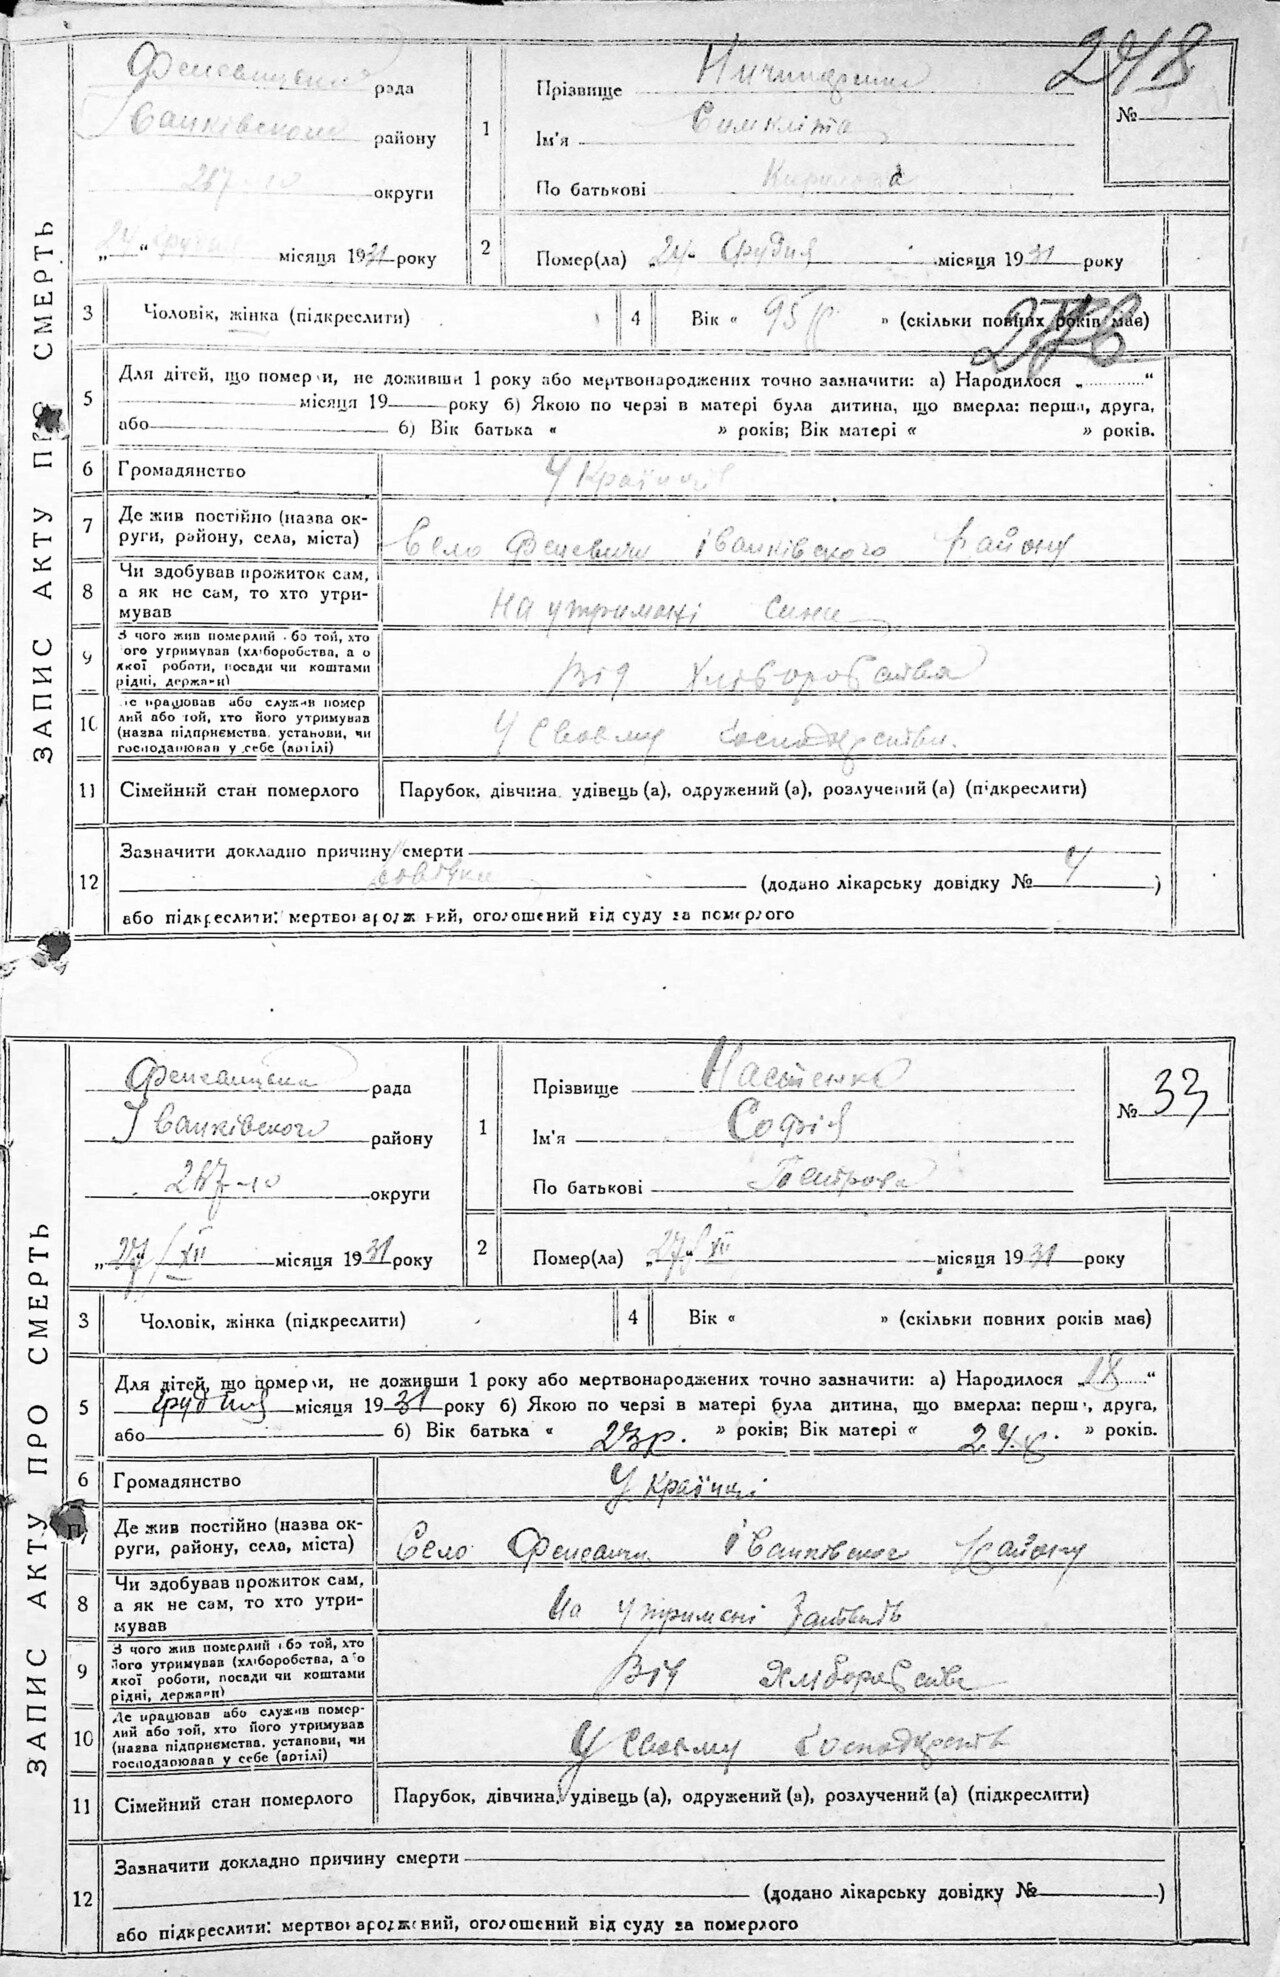 248
ЗАПИС АКТУ ПРО СМЕРТЬ
рада
Іванківського району
267-10 округи
„24“ Грудня місяця 1931 року
1
Прізвище
Ім'я
По батькові Кирилова
№
2
Помер(ла) „24“ Грудня місяця 1931 року
3
Чоловік, жінка (підкреслити)
4
Вік « 95 р. » (скільки повних років має)
5
Для дітей, що померли, не доживши 1 року або мертвонароджених точно зазначити: а) Народилося „ “
місяця 19 року б) Якою по черзі в матері була дитина, що вмерла: перша, друга,
або б) Вік батька « » років; Вік матері « » років.
6
Громадянство
Україні
7
Де жив постійно (назва ок-
руги, району, села, міста)
Село Феневичи Іванківського Району
8
Чи здобував прожиток сам,
а як не сам, то хто утри-
мував
На утримані сина
9
З чого жив померлий або той, хто
його утримував (хліборобства, а о
якої роботи, посади чи коштами
рідні, держави)
Від Хліборобства
10
Де працював або служив помер
лий або той, хто його утримував
(назва підприємства, установи, чи
господарював у себе (артілі)
У Своему Господарстви.
11
Сімейний стан померлого
Парубок, дівчина, удівець (а), одружений (а), розлучений (а) (підкреслити)
12
Зазначити докладно причину смерти
(додано лікарську довідку № )
або підкреслити: мертвонароджений, оголошений від суду за померлого
ЗАПИС АКТУ ПРО СМЕРТЬ
рада
Іванківского району
267-10 округи
„27/XII місяця 1931 року
1
Прізвище Настенко
Ім'я Софія
По батькові Петрова
№ 33
2
Помер(ла) „27/XII місяця 1931 року
3
Чоловік, жінка (підкреслити)
4
Вік « » (скільки повних років має)
5
Для дітей, що померли, не доживши 1 року або мертвонароджених точно зазначити: а) Народилося „18“
Грудня місяця 1931 року б) Якою по черзі в матері була дитина, що вмерла: перша, друга,
або б) Вік батька « 23 р. » років; Вік матері « 24 р. » років.
6
Громадянство
Україні
7
Де жив постійно (назва ок-
руги, району, села, міста)
Село Феневичи Іванківского Району
8
Чи здобував прожиток сам,
а як не сам, то хто утри-
мував
На утримані
9
З чого жив померлий або той, хто
його утримував (хліборобства, а о
якої роботи, посади чи коштами
рідні, держави)
Від Хліборобства
10
Де працював або служив помер-
лий або той, хто його утримував
(назва підприємства, установи, чи
господарював у себе (артілі)
У Своему Господарств
11
Сімейний стан померлого
Парубок, дівчина, удівець (а), одружений (а), розлучений (а) (підкреслити)
12
Зазначити докладно причину смерти
(додано лікарську довідку № )
або підкреслити: мертвонароджений, оголошений від суду за померлого